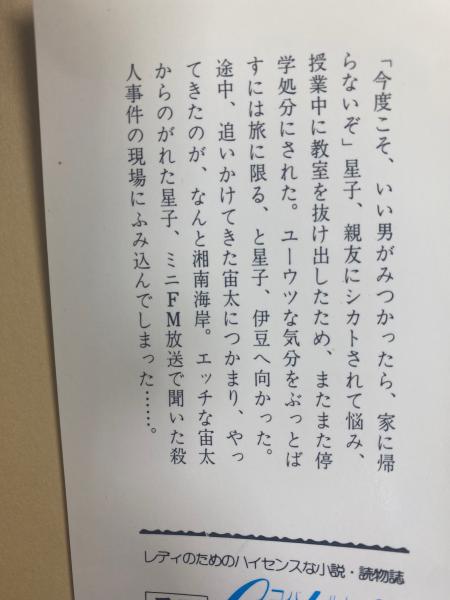 「今度こそ、いい男がみつかったら、家に帰
らないぞ」星子、親友にシカトされて悩み、
授業中に教室を抜け出したため、またまた停
学処分にされた。ユーウツな気分をぶっとば
すには旅に限る、と星子、伊豆へ向かった。
途中、追いかけてきた宙太につかまり、やっ
てきたのが、なんと湘南海岸。エッチな宙太
からのがれた星子、ミニFM放送で聞いた殺
人事件の現場にふみ込んでしまった……。
レディのためのハイセンスな小説・読物誌